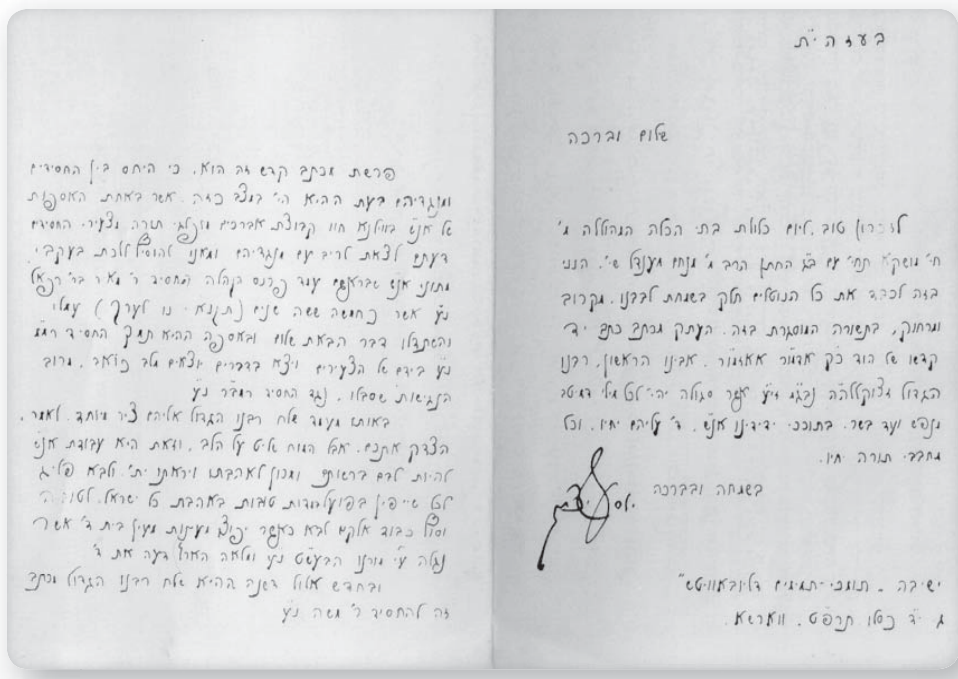 בעזה״ת
שלום וברכה
לזכרון טוב, ליום כלולת בתי הכלה המהוללה מ׳
חי׳ מושקא תחי׳ עם ב״ג החתן הרב מ׳ מנחם מענדל שי׳, הנני
בזה לכבד את כל הנוטלים חלק בשמחת לבבנו, מקרוב
ומרחוק, בתשורה המוסגרת בזה, העתק מכתב כתב יד
קדשו של הוד כ״ק אדמו״ר אאזמו״ר, אבינו הראשון, רבנו
הגדול זצוקללה״ה נבג״מ זי״ע אשר סגולה יהי׳ לכל מילי דמיטב
מנפש ועד בשר, בתוככי ידידינו אנ״ש, ד׳ עליהם יחיו, וכל
מחבבי תורה יחיו.
בשמחה ובברכה
ישיבה - תומכי-תמימים דליובאוויטש״
ג, י״ד כסלו תרפ״ט, ווארשא.
פרשת מכתב קדש זה הוא, כי היחס בין החסידים
ומנגדיהם בעת ההיא הי׳ במצב כזה, אשר באחת האספות
של אנ״ש בווילנא חוו קבוצת אברכים מופלגי תורה מצעירי החסידים
דעתם לצאת לריב עם מנגדיהם ומאנו להוסיף ללכת בעקבי
מתוני אנ״ש שבראשם עמד פרנס הקהלה החסיד ר׳ מאיר בר׳ רפאל
נ״ע אשר כחמשה ששה שנים (תקנ״א - נו לערך) עמלו
והשתדלו דבר הבאת שלום ובאספה ההיא תמך החסיד
נ״ע בידם של הצעירים ויצא בדברים יוצאים מלב כואב, מרוב
הנגישות שסבלו, נגד החסיר רמב״ר נ״ע
באותו מעמד שלח רבנו הגדול אליהם ציר מיוחד, לאמר,
הצדק אתכם, אבל המוח שליט על הלב, וזאת היא עבודת אנ״ש
להיות לבם ברשותם ומכון לאהבתו ויראתו ית׳, ולבא פליג
לכל שייפין בפועל ומדות טובות באהבת כל ישראל, לטובה
וסוף כבוד אלקים לבא כאשר יפוצו מעינות מעין בית ד׳ אשר
נגלה ע״י מורנו הבעש״ט נ״ע ומלאה הארץ דעה את ד׳
ובחדש אלול דשנה ההיא שלח רבנו הגדול מכתב
זה להחסיד ר׳ משה נ״ע